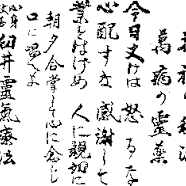 招福の秘法
萬病の靈薬
今日丈けは 怒るな
心配すな 感謝して
業をはげめ 人に親切に
朝夕合掌して心に念じ
口に唱へよ
臼井靈氣療法